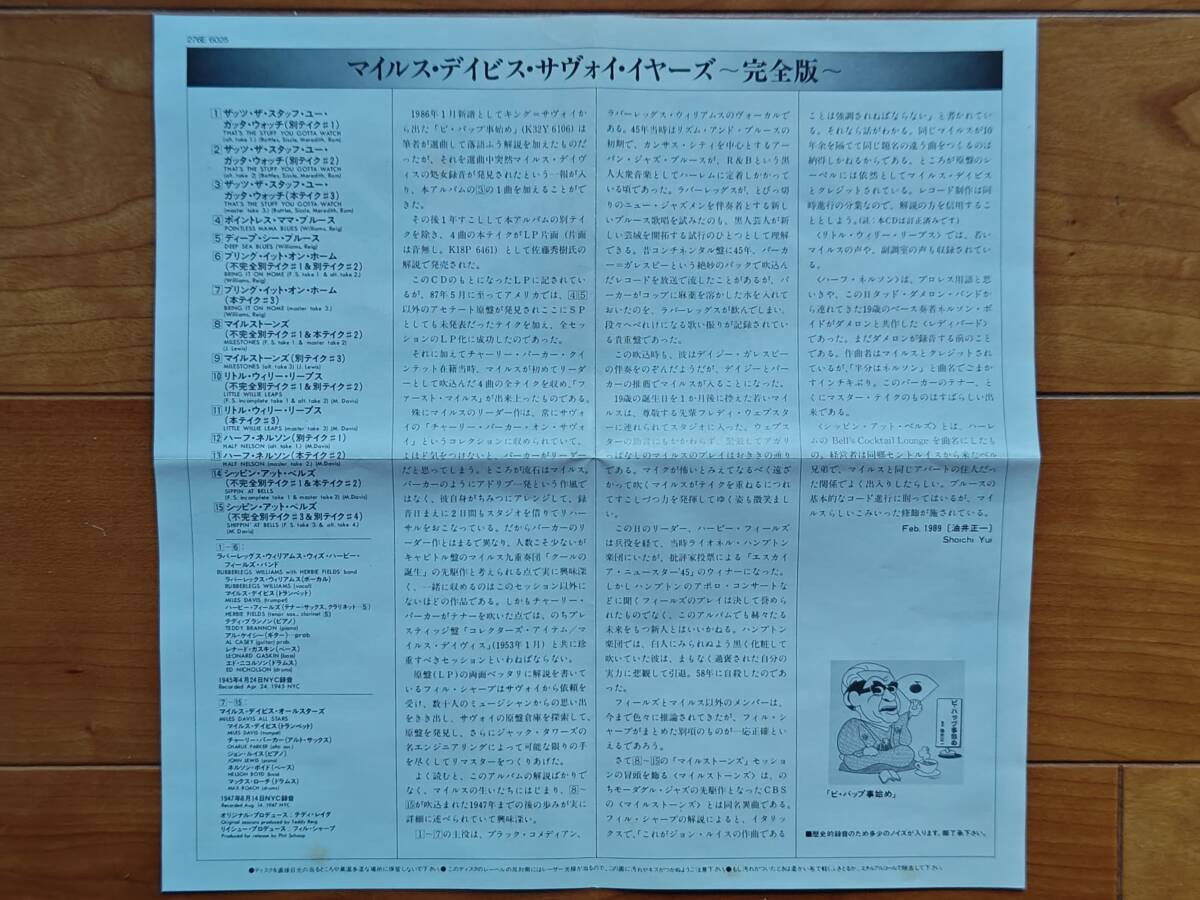 276E 6025
マイルス・デイビス・サヴォイ・イヤーズ〜完全版〜
1 ザッツ・ザ・スタッフ・ユー・
ガッタ・ウォッチ(別テイク♯1)
THAT'S THE STUFF YOU GOTTA WATCH
(alt. take 1.) (Battles, Sissle, Meredith, Ram)
2 ザッツ・ザ・スタッフ・ユー・
ガッタ・ウォッチ(別テイク♯2)
THAT'S THE STUFF YOU GOTTA WATCH
(alt. take 2) (Battles, Sissle, Meredith, Ram)
3 ザッツ・ザ・スタッフ・ユー・
ガッタ・ウォッチ(本テイク♯3)
THAT'S THE STUFF YOU GOTTA WATCH
(master take 3.) (Battles, Sissle, Meredith, Ram)
4 ポイントレス・ママ・ブルース
POINTLESS MAMA BLUES (Williams, Reig)
5 ディープ・シー・ブルース
DEEP SEA BLUES (Williams, Reig)
6 ブリング・イット・オン・ホーム
(不完全別テイク♯1&別テイク♯2)
BRING IT ON HOME (F. S. take 1. & alt. take 2.)
(Williams, Reig)
7 ブリング・イット・オン・ホーム
(本テイク♯3)
BRING IT ON HOME (master take 3.)
(Williams, Reig)
8 マイルストーンズ
(不完全別テイク♯1&本テイク♯2)
MILESTONES (F. S. take 1. & master take 2)
(J. Lewis)
9 マイルストーンズ(別テイク♯3)
MILESTONES (alt. take 3) (J. Lewis)
10 リトル・ウィリー・リープス
(不完全別テイク♯1&別テイク♯2)
LITTLE WILLIE LEAPS
(F. S. incomplete take 1 & alt. take 2) (M. Davis)
11 リトル・ウィリー・リープス
(本テイク♯3)
LITTLE WILLIE LEAPS (master take 3) (M. Davis)
12 ハーフ・ネルソン(別テイク♯1)
HALF NELSON (alt. take 1.) (M.Davis)
13 ハーフ・ネルソン(本テイク♯2)
HALF NELSON (master take 2.) (M.Davis)
14 シッピン・アット・ベルズ
(不完全別テイク♯1&本テイク♯2)
SIPPIN' AT BELLS
(F. S. incomplete take 1 & master take 2) (M.Davis)
15 シッピン・アット・ベルズ
(不完全別テイク♯3&別テイク♯4)
SHIPPIN' AT BELLS (F. S. take 3. & alt. take 4.)
(M. Davis)
1〜6:
ラバーレッグス・ウィリアムス・ウィズ・ハービー・
フィールズ・バンド
RUBBERLEGS WILLIAMS with HERBIE FIELDS band
ラバーレックス・ウィリアムス(ボーカル)
RUBBERLEGS WILLIAMS (vocal)
マイルス・デイビス(トランペット)
MILES DAVIS (trumpet)
ハービー・フィールズ(テナー・サックス、クラリネット…5)
HERBIE FIELDS (tenor sax., clarinet 5)
テディ・ブランノン(ピアノ)
TEDDY BRANNON (piano)
アル・ケイシー(ギター)…prob.
AL CASEY (guitar) prob.
レナード・ガスキン(ベース)
LEONARD GASKIN (bass)
エド・ニコルソン(ドラムス)
ED NICHOLSON (drums)
1945年4月24日NYC録音
Recorded Apr. 24, 1945 NYC
7〜15:
マイルス・デイビス・オールスターズ
MILES DAVIS ALL STARS
マイルス・デイビス(トランペット)
MILES DAVIS (trumpet)
チャーリー・パーカー(アルト・サックス)
CHARLIE PARKER (alto sax.)
ジョン・ルイス(ピアノ)
JOHN LEWIS (piano)
ネルソン・ボイド(ベース)
NELSON BOYD (bass)
マックス・ローチ(ドラムス)
MAX ROACH (drums)
1947年8月14日NYC録音
Recorded Aug. 14, 1947 NYC
オリジナル・プロデュース:テディ・レイグ
Original sessions produced by Teddy Reig
リイシュー・プロデュース:フィル・シャープ
Produced for release by Phil Schaap
1986年1月新譜としてキング=サヴォイか
ら出た「ビ・バップ事始め」(K32Y 6106)は
筆者が選曲して落語ふう解説を加えたものだ
ったが、それを選曲中突然マイルス・デイヴ
ィスの処女録音が発見されたという一報が入
り、本アルバムの3の1曲を加えることがで
きた。
その後1年すこしして本アルバムの別テイ
クを除き、4曲の本テイクがLP片面(片面
は音無し。K18P 6461)として佐藤秀樹氏の
解説で発売された。
このCDのもとになったLPに記されてい
るが、87年5月に至ってアメリカでは、4 5
以外のアセテート原盤が発見されここにSP
としても未発表だったテイクを加え、全セッ
ションのLP化に成功したのであった。
それに加えてチャーリー・パーカー・クイ
ンテット在籍当時、マイルスが初めてリーダ
ーとして吹込んだ4曲の全テイクを収め、「フ
ァースト・マイルス」が出来上ったものである。
殊にマイルスのリーダー作は、常にサヴォ
イの「チャーリー・パーカー・オン・サヴォ
イ」というコレクションに収められていて、
よほど気をつけないと、パーカーがリーダー
だと思ってしまう。ところが流石はマイルス、
パーカーのようにアドリブ一発という作風で
はなく、彼自身がちみつにアレンジして、録
音日まえに2日間もスタジオを借りてリハー
サルをおこなっている。だからパーカーのリ
ーダー作とはまるで異なり、人数こそ少ないが
キャピトル盤のマイルス九重奏団「クールの
誕生」の先駆作と考えられる点で実に興味深
く、一緒に収めるのはこのセッション以外に
ないほどの作品である。しかもチャーリー・
パーカーがテナーを吹いた点では、のちプレ
スティッジ盤「コレクターズ・アイテム/マ
イルス・デイヴィス」(1953年1月)と共に珍
重すべきセッションといわねばならない。
原盤(LP)の両面ベッタリに解説を書いて
いるフィル・シャープはサヴォイから依頼を
受け、数十人のミュージシャンからの思い出
をきき出し、サヴォイの原盤倉庫を探索して、
原盤を発見し、さらにジャック・タワーズの
名エンジニアリングによって可能な限りの手
を尽くしてリマスターをつくりあげた。
よく読むと、このアルバムの解説ばかりで
なく、マイルスの生いたちにはじまり、8〜
15が吹込まれた1947年までの後の歩みが実に
詳細に述べられていて興味深い。
1〜7の主役は、ブラック・コメディアン、
ラバーレッグス・ウィリアムスのヴォーカルで
ある。45年当時はリズム・アンド・ブルースの
初期で、カンサス・シティを中心とするアー
バン・ジャズ・ブルースが、R&Bという黒
人大衆音楽としてハーレムに定着しかかって
いる頃であった。ラバーレッグスが、とびっ切
りのニュー・ジャズメンを伴奏者とする新し
いブルース歌唱を試みたのも、黒人芸人が新
しい芸域を開拓する試行のひとつとして理解
できる。昔コンチネンタル盤に45年、パーカ
ー=ガレスピーという絶妙のバックで吹込ん
だレコードを放送で流したことがあるが、パ
ーカーがコップに麻薬を溶かした水を入れて
おいたのを、ラバーレッグスが飲んでしまい、
段々へべれけになる歌い振りが記録されてい
る貴重盤であった。
この吹込時も、彼はデイジー・ガレスピー
の伴奏をのぞんだようだが、デイジーとパー
カーの推薦でマイルスが入ることになった。
19歳の誕生日を1か月後に控えた若いマイ
ルスは、尊敬する先輩フレディ・ウェブスタ
ーに連れられてスタジオに入った。ウェブス
ターの助言にもかかわらず、緊張してアガり
っぱなしのマイルスのプレイはおききの通り
である。マイクが怖いとみえてなるべく遠ざ
かって吹くマイルスがテイクを重ねるにつれ
てすこしづつ力を発揮してゆく姿も微笑まし
い。
この日のリーダー、ハービー・フィールズ
は兵役を経て、当時ライオネル・ハンプトン
楽団にいたが、批評家投票による「エスカイ
ア・ニュースター'45」のウィナーになった。
しかしハンプトンのアポロ・コンサートなど
に聞くフィールズのプレイは決して誉められ
たものでなく、このアルバムでも赫々たる
未来をもつ新人とはいいかねる。ハンプトン
楽団では、白人にみられぬよう黒く化粧して
吹いていた彼は、まもなく過褒された自分の
実力に悲観して引退。58年に自殺したのであ
った。
フィールズとマイルス以外のメンバーは、
今まで色々に推論されてきたが、フィル・シ
ャープがまとめた別項のものが一応正確とい
えるであろう。
さて8〜15の「マイルストーンズ」セッシ
ョンの冒頭を飾る〈マイルストーンズ〉は、の
ちモーダル・ジャズの先駆作となったCBS
の〈マイルストーンズ〉とは同名異曲である。
フィル・シャープの解説によると、イタリッ
クスで、「これがジョン・ルイスの作曲である
ことは強調されねばならない」と書かれてい
る。それなら話がわかる。同じマイルスが10
年余を隔てて同じ題名の違う曲をつくるのは
納得しかねるからである。ところが原盤のレ
ーベルには依然としてマイルス・デイビス
とクレジットされている。レコード制作は同
時進行の分業なので、解説の方を信用するこ
ととしよう。(註:本CDは訂正済みです)
〈リトル・ウィリー・リープス〉では、若い
マイルスの声や、副調室の声も収録されてい
る。
〈ハーフ・ネルソン〉は、プロレス用語と思い
きや、この日タッド・ダメロン・バンドか
ら連れてきた19歳のベース奏者ネルソン・ボ
イドがダメロンと共作した〈レディバード〉
であった。まだダメロンが録音する前のこと
である。作曲者はマイルスとクレジットされ
ているが、「半分はネルソン」と曲名でごまか
すインチキぶり。このパーカーのテナー、と
くにマスター・テイクのものはすばらしい出
来である。
〈シッピン・アット・ベルズ〉とは、ハーレ
ムの Bell's Cocktail Lounge を曲名にしたも
の。経営者は同郷セントルイスから来たベル
兄弟で、マイルスと同じアパートの住人だっ
た関係でよく出入りしたらしい。ブルースの
基本的なコード進行に則ってはいるが、マイ
ルスらしいこみいった修飾が施されている。
Feb. 1989 [油井正一]
Shoichi Yui
ビ・バップ事始め
「ビ・バップ事始め」
■歴史的録音のため多少のノイズが入ります。御了承下さい。
●ディスクを直接日光の当るところや高温多湿な場所に保管しないで下さい。●このディスクのレーベルの反対側にはレーザー光線が当るので、この面に汚れやキズがつかぬようご注意下さい。●もし汚れがついたときは柔かい布で軽くふきとるか、エチルアルコールで除去して下さい。